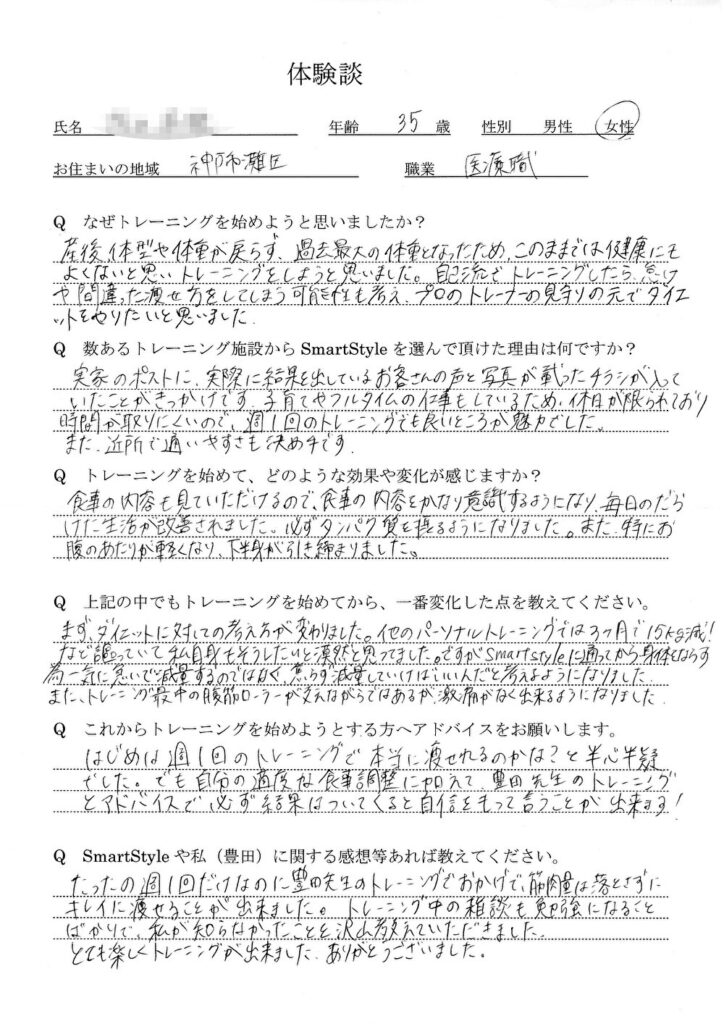 体験談
氏名 年齢 35 歳 性別 男性 女性
お住まいの地域 神戸市灘区 職業 医療職
Q なぜトレーニングを始めようと思いましたか？
産後、体型や体重が戻らず、過去最大の体重となったため、このままでは健康にも
よくないと思いトレーニングをしようと思いました。自己流でトレーニングしたら、怠け
や間違った痩せ方をしてしまう可能性も考え、プロのトレーナーの見守りの元でダイエ
ットをやりたいと思いました。
Q 数あるトレーニング施設から SmartStyle を選んで頂けた理由は何ですか？
実家のポストに、実際に結果を出しているお客さんの声と写真が載ったチラシが入って
いたことがきっかけです。子育てやフルタイムの仕事もしているため、休日が限られており
時間が取りにくいので、週1回のトレーニングでも良いところが魅力でした。
また、近所で通いやすさも決め手です。
Q トレーニングを始めて、どのような効果や変化が感じますか？
食事の内容も見ていただけるので、食事の内容をかなり意識するようになり、毎日のだら
けた生活が改善されました。必ずタンパク質を摂るようになりました。また、特にお
腹のあたりが軽くなり、下半身が引き締まりました。
Q 上記の中でもトレーニングを始めてから、一番変化した点を教えてください。
まず、ダイエットに対しての考え方が変わりました。他のパーソナルトレーニングでは3ヶ月で15kg減！
など謳っていて私自身もそうしたいと漠然と思ってました。ですがSmartstyleに通ってから、身体をならす
為一気に急いで減量するのではなく、焦らず減量していけばいいんだと考えるようになりました。
また、トレーニング最中の腹筋ローラーが支えながらではあるが、激痛がなく出来るようになりました。
Q これからトレーニングを始めようとする方へアドバイスをお願いします。
はじめは週1回のトレーニングで本当に痩せれるのかな？と半心半疑
でした。でも自分の適度な食事調整に加えて、豊田先生のトレーニング
とアドバイスで必ず結果はついてくると自信をもって言うことが出来ます！
Q SmartStyle や私（豊田）に関する感想等あれば教えてください。
たったの週1回だけなのに豊田先生のトレーニングでおかげで、筋肉量は落とさずに
キレイに痩せることが出来ました。トレーニング中の雑談も勉強になること
ばかりで、私が知らなかったことを沢山教えていただきました。
とても楽しくトレーニングが出来ました。ありがとうございました。